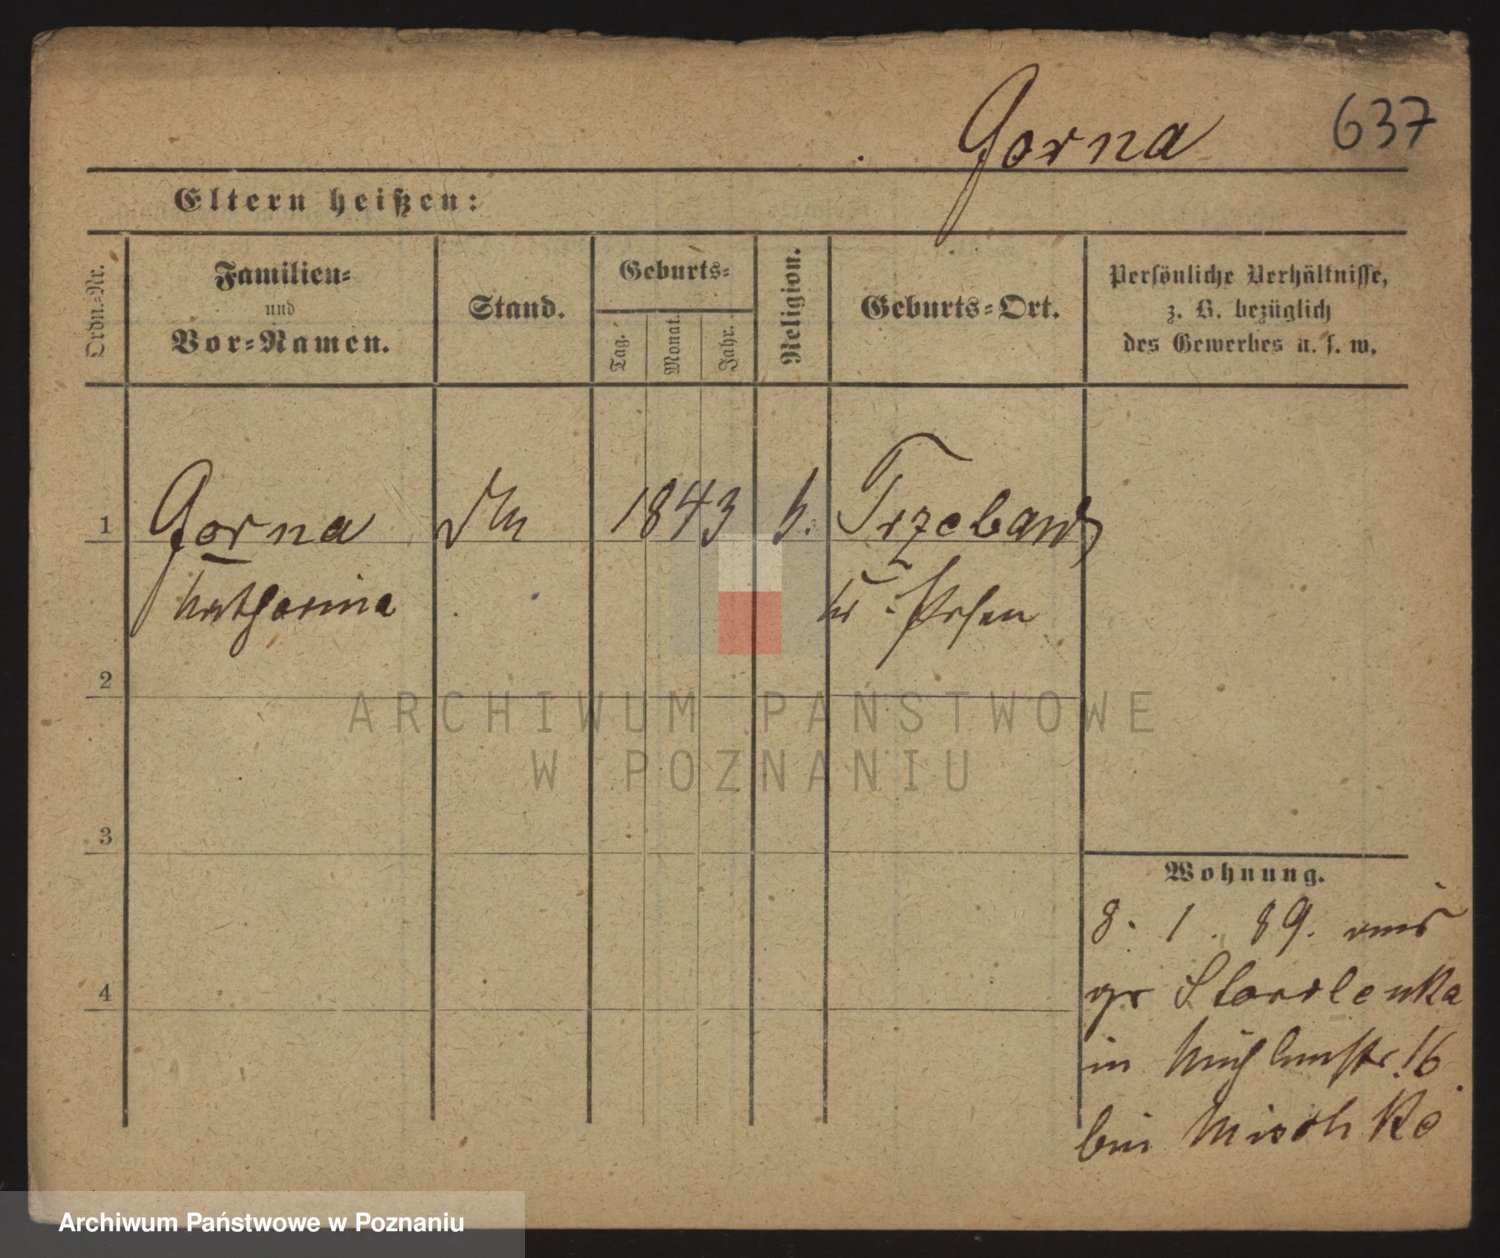 Gorna 637
Eltern heißen:
Ordn.=Nr.
Familien=
und
Vor=Namen.
Stand.
Geburts=
Tag.
Monat.
Jahr.
Religion.
Geburts=Ort.
Persönliche Verhältnisse,
z. B. bezüglich
des Gewerbes u. s. w.
1 Gorna 1843 k. Trzebaw
Katharina Kr Posen
2
3
4
Wohnung.
8. 1. 89. aus
gr Starolenka
in Mühlenstr. 16
bei Mischke
ARCHIWUM PAŃSTWOWE
W POZNANIU
Archiwum Państwowe w Poznaniu